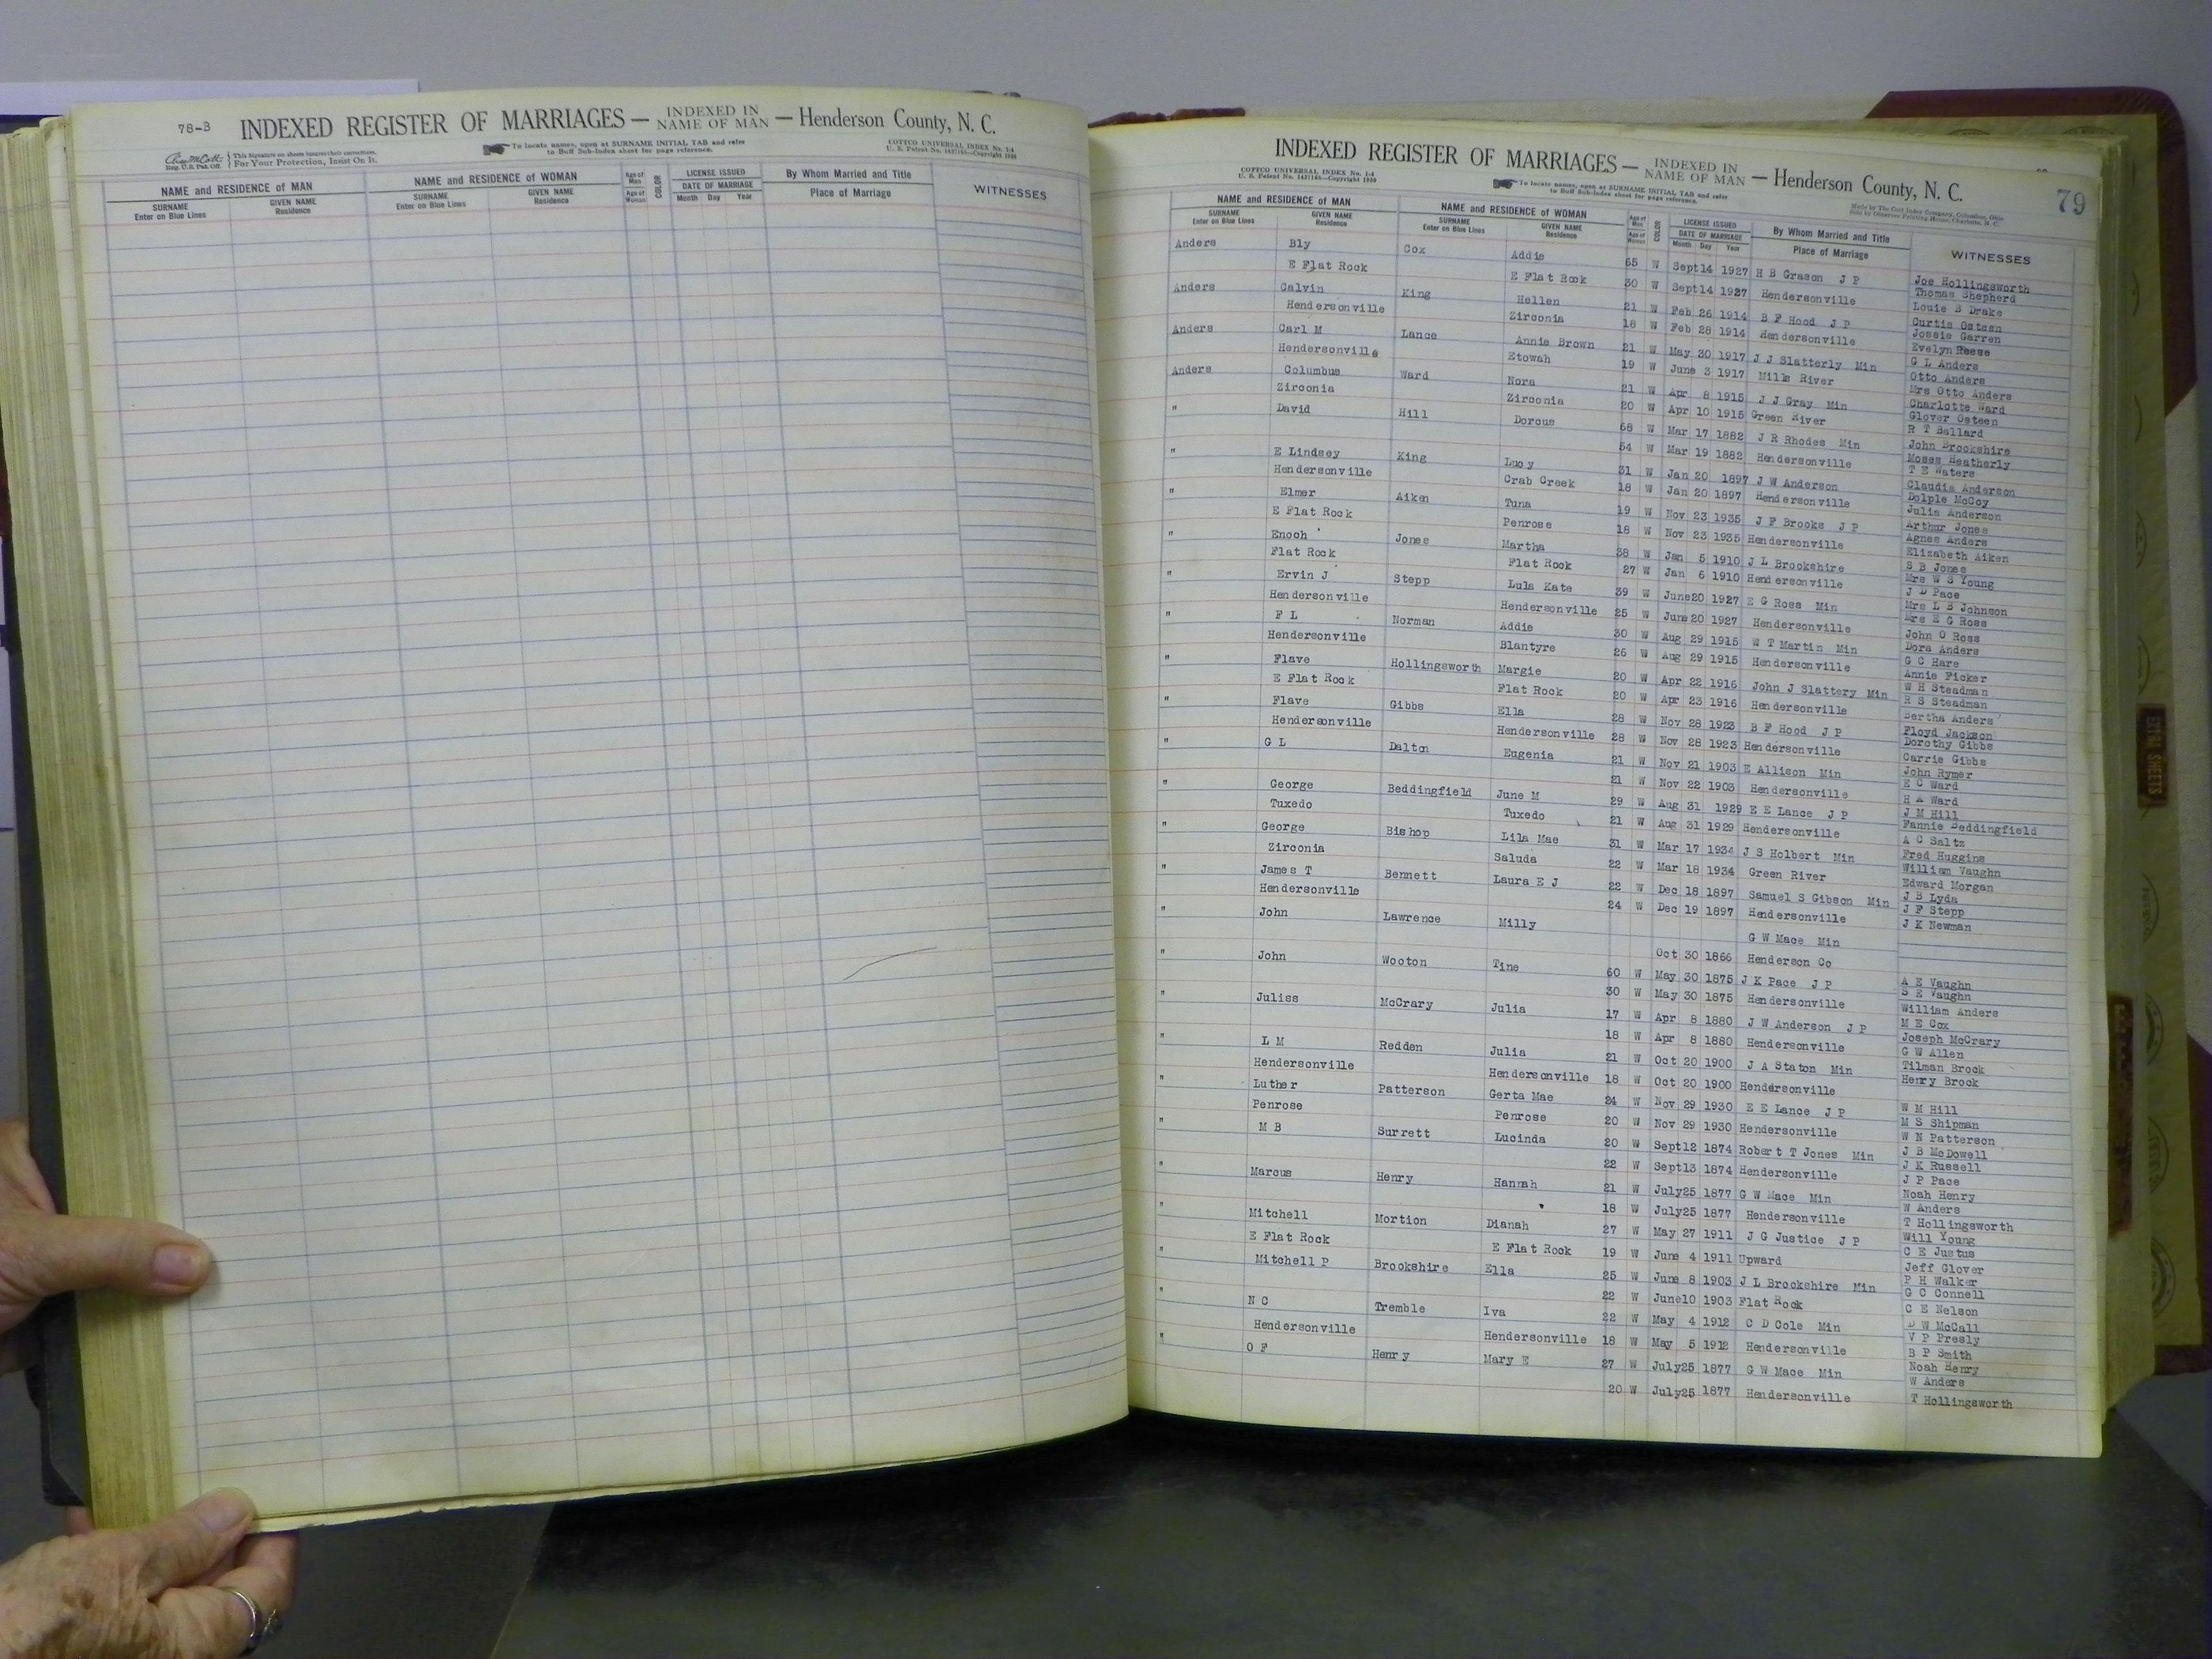 78-B INDEXED REGISTER OF MARRIAGES — INDEXED IN NAME OF MAN — Henderson County, N. C.
This Signature on sheets insures their correctness.
For Your Protection, Insist On It.
To locate names, open at SURNAME INITIAL TAB and refer
to Buff Sub-Index sheet for page reference.
COTTCO UNIVERSAL INDEX No. 1-4
NAME and RESIDENCE of MAN NAME and RESIDENCE of WOMAN Age of Man Age of Woman COLOR LICENSE ISSUED DATE OF MARRIAGE By Whom Married and Title WITNESSES
SURNAME Enter on Blue Lines GIVEN NAME Residence SURNAME Enter on Blue Lines GIVEN NAME Residence Month Day Year Place of Marriage
INDEXED REGISTER OF MARRIAGES — INDEXED IN NAME OF MAN — Henderson County, N. C. 79
COTTCO UNIVERSAL INDEX No. 1-4
To locate names, open at SURNAME INITIAL TAB and refer
to Buff Sub-Index sheet for page reference.
Made by The Cott Index Company, Columbus, Ohio
Sold by Observer Printing House, Charlotte, N. C.
NAME and RESIDENCE of MAN NAME and RESIDENCE of WOMAN Age of Man Age of Woman COLOR LICENSE ISSUED DATE OF MARRIAGE By Whom Married and Title WITNESSES
SURNAME Enter on Blue Lines GIVEN NAME Residence SURNAME Enter on Blue Lines GIVEN NAME Residence Month Day Year Place of Marriage
Anders Bly Cox Addie 65 W Sept 14 1927 H B Grason J P Joe Hollingsworth
Thomas Shepherd
E Flat Rock E Flat Rock 30 W Sept 14 1927 Hendersonville Louie B Drake
Anders Calvin King Hellen 21 W Feb 26 1914 B F Hood J P Curtis Osteen
Jossie Garren
Hendersonville Zirconia 18 W Feb 28 1914 Hendersonville Evelyn Reese
Anders Carl M Lance Annie Brown 21 W May 30 1917 J J Slatterly Min G L Anders
Otto Anders
Hendersonville Etowah 19 W June 3 1917 Mills River Mrs Otto Anders
Anders Columbus Ward Nora 21 W Apr 8 1915 J J Gray Min Charlotte Ward
Glover Osteen
Zirconia Zirconia 20 W Apr 10 1915 Green River R T Ballard
" David Hill Dorcus 68 W Mar 17 1882 J R Rhodes Min John Brookshire
Moses Heatherly
54 W Mar 19 1882 Hendersonville T E Waters
" E Lindsey King Lucy 31 W Jan 20 1897 J W Anderson Claudia Anderson
Delple McCoy
Hendersonville Crab Creek 18 W Jan 20 1897 Hendersonville Julia Anderson
" Elmer Aiken Tuna 19 W Nov 23 1935 J F Brooks J P Arthur Jones
Agnes Anders
E Flat Rock Penrose 18 W Nov 23 1935 Hendersonville Elizabeth Aiken
" Enoch Jones Martha 38 W Jan 5 1910 J L Brookshire S B Jones
Mrs W S Young
Flat Rock Flat Rock 27 W Jan 6 1910 Hendersonville J D Pace
" Ervin J Stepp Lula Kate 39 W June 20 1927 E G Ross Min Mrs L B Johnson
Mrs E G Ross
Hendersonville Hendersonville 25 W June 20 1927 Hendersonville John O Ross
" F L Norman Addie 30 W Aug 29 1915 W T Martin Min Dora Anders
G C Hare
Hendersonville Blantyre 26 W Aug 29 1915 Hendersonville Annie Ficker
" Flave Hollingsworth Margie 20 W Apr 22 1916 John J Slattery Min W H Steadman
R S Steadman
E Flat Rock Flat Rock 20 W Apr 23 1916 Hendersonville Bertha Anders
" Flave Gibbs Ella 28 W Nov 28 1923 B F Hood J P Floyd Jackson
Dorothy Gibbs
Hendersonville Hendersonville 28 W Nov 28 1923 Hendersonville Carrie Gibbs
" G L Dalton Eugenia 21 W Nov 21 1903 E Allison Min John Rymer
E C Ward
21 W Nov 22 1903 Hendersonville H A Ward
" George Beddingfield June M 29 W Aug 31 1929 E E Lance J P J M Hill
Fannie Beddingfield
Tuxedo Tuxedo 21 W Aug 31 1929 Hendersonville A C Saltz
" George Bishop Lila Mae 31 W Mar 17 1934 J S Holbert Min Fred Huggins
William Vaughn
Zirconia Saluda 22 W Mar 18 1934 Green River Edward Morgan
" James T Bennett Laura E J 22 W Dec 18 1897 Samuel S Gibson Min J B Lyda
J F Stepp
Hendersonville 24 W Dec 19 1897 Hendersonville J K Newman
" John Lawrence Milly G W Mace Min
Oct 30 1866 Henderson Co
" John Wooton Tine 60 W May 30 1875 J K Pace J P A E Vaughn
S E Vaughn
30 W May 30 1875 Hendersonville William Anders
" Juliss McCrary Julia 17 W Apr 8 1880 J W Anderson J P M E Cox
Joseph McCrary
18 W Apr 8 1880 Hendersonville G W Allen
" L M Redden Julia 21 W Oct 20 1900 J A Staton Min Tilman Brock
Henry Brock
Hendersonville Hendersonville 18 W Oct 20 1900 Hendersonville
" Luther Patterson Gerta Mae 24 W Nov 29 1930 E E Lance J P W M Hill
M S Shipman
Penrose Penrose 20 W Nov 29 1930 Hendersonville W N Patterson
" M B Surrett Lucinda 20 W Sept 12 1874 Robert T Jones Min J B McDowell
J K Russell
22 W Sept 13 1874 Hendersonville J P Pace
" Marcus Henry Hannah 21 W July 25 1877 G W Mace Min Noah Henry
W Anders
18 W July 25 1877 Hendersonville T Hollingsworth
" Mitchell Mortion Dianah 27 W May 27 1911 J G Justice J P Will Young
C E Justus
E Flat Rock E Flat Rock 19 W June 4 1911 Upward Jeff Glover
" Mitchell P Brookshire Ella 25 W June 8 1903 J L Brookshire Min P H Walker
G C Connell
22 W June 10 1903 Flat Rock C E Nelson
" N C Tremble Iva 22 W May 4 1912 C D Cole Min D W McCall
V P Presly
Hendersonville Hendersonville 18 W May 5 1912 Hendersonville B P Smith
" O F Henry Mary E 27 W July 25 1877 G W Mace Min Noah Henry
W Anders
20 W July 25 1877 Hendersonville T Hollingsworth
EXTRA SHEETS